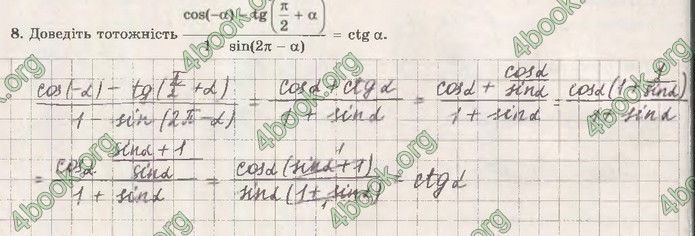 8. Доведіть тотожність (cos(−α) − tg(π/2 + α)) / (1 − sin(2π − α)) = ctg α.
(cos(-α) − tg(π/2 + α)) / (1 − sin(2π − α)) = (cosα + ctgα) / (1 + sinα) = (cosα + cosα/sinα) / (1 + sinα) = (cosα(1 + 1/sinα)) / (1 + sinα)
= (cosα (sinα + 1)/sinα) / (1 + sinα) = (cosα (sinα + 1)) / (sinα (1 + sinα)) = ctgα
4book.org